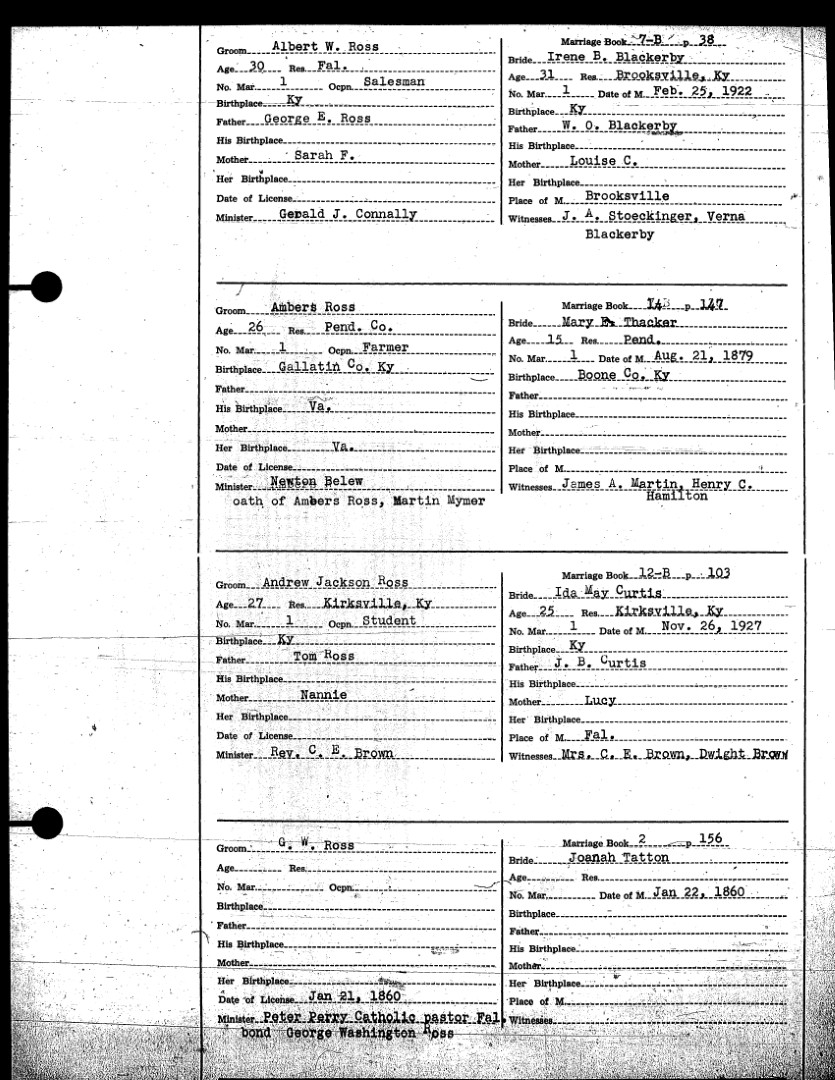 Groom Albert W. Ross
Age 30 Res Fal.
No. Mar. 1 Ocpn. Salesman
Birthplace Ky
Father George E. Ross
His Birthplace
Mother Sarah F.
Her Birthplace
Date of License
Minister Gerald J. Connally
Marriage Book 7-B p. 38
Bride Irene B. Blackerby
Age 31 Res. Brooksville, Ky
No. Mar. 1 Date of M. Feb. 25, 1922
Birthplace Ky
Father W. O. Blackerby
His Birthplace
Mother Louise C.
Her Birthplace
Place of M. Brooksville
Witnesses J. A. Stoeckinger, Verna
Blackerby
Groom Ambers Ross
Age 26 Res. Pend. Co.
No. Mar. 1 Ocpn. Farmer
Birthplace Gallatin Co. Ky
Father
His Birthplace Va.
Mother
Her Birthplace Va.
Date of License
Minister Newton Belew
oath of Ambers Ross, Martin Mymer
Marriage Book p. 147
Bride Mary Thacker
Age 15 Res. Pend.
No. Mar. 1 Date of M. Aug. 21, 1879
Birthplace Boone Co. Ky
Father
His Birthplace
Mother
Her Birthplace
Place of M.
Witnesses James A. Martin, Henry C.
Hamilton
Groom Andrew Jackson Ross
Age 27 Res. Kirksville, Ky
No. Mar. 1 Ocpn. Student
Birthplace Ky
Father Tom Ross
His Birthplace
Mother Nannie
Her Birthplace
Date of License
Minister Rev. C. E. Brown
Marriage Book 12-B p. 103
Bride Ida May Curtis
Age 25 Res. Kirksville, Ky
No. Mar. 1 Date of M. Nov. 26, 1927
Birthplace Ky
Father J. B. Curtis
His Birthplace
Mother Lucy
Her Birthplace
Place of M. Fal.
Witnesses Mrs. C. E. Brown, Dwight Brown
Groom G. W. Ross
Age Res.
No. Mar. Ocpn.
Birthplace
Father
His Birthplace
Mother
Her Birthplace
Date of License Jan 21, 1860
Minister Peter Perry Catholic pastor Fal.
bond George Washington Ross
Marriage Book 2 p. 156
Bride Joanah Tatton
Age Res.
No. Mar. Date of M. Jan 22, 1860
Birthplace
Father
His Birthplace
Mother
Her Birthplace
Place of M.
Witnesses